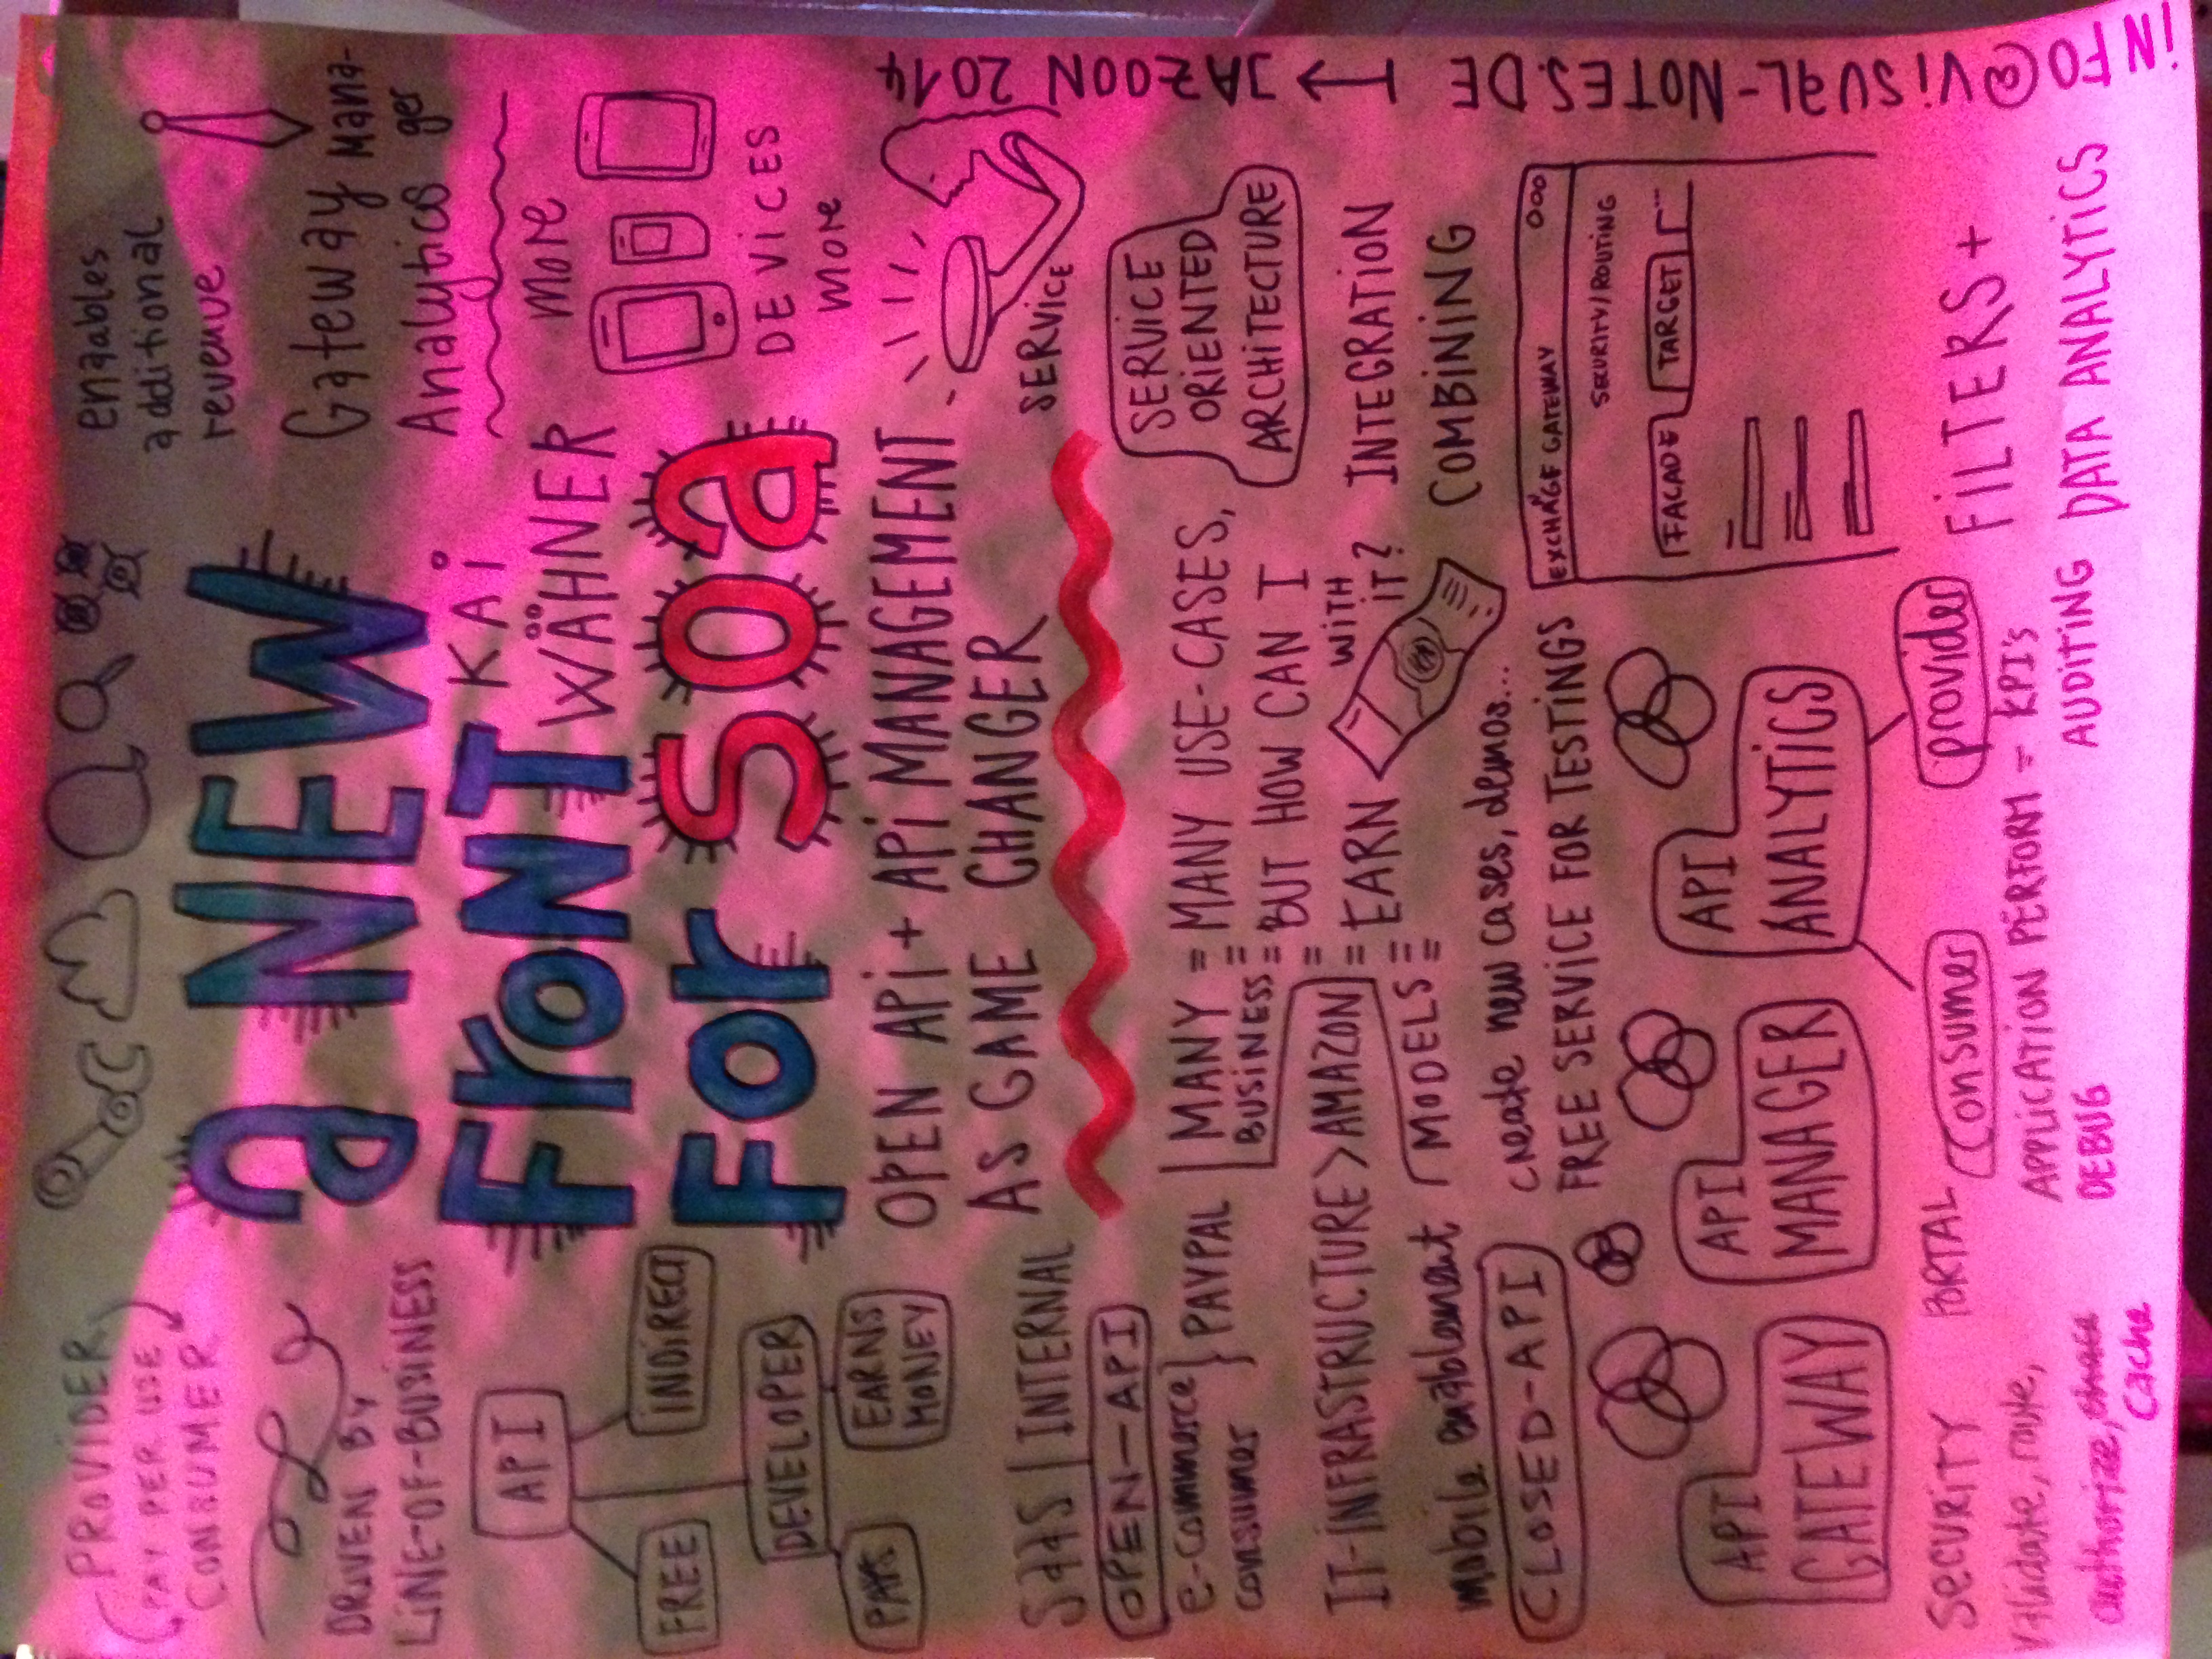 PROVIDER
PAY PER USE
CONSUMER
DRIVEN BY
LINE-OF-BUSINESS
API
FREE
INDIRECT
DEVELOPER
PAYS
EARNS
MONEY
a NEW
FRONT
FOR SOA
KAI
WÄHNER
OPEN API + API MANAGEMENT
AS GAME CHANGER
enables
additional
revenue
Gateway Mana-
ger
Analytics
More
DEVICES
more
SERVICE
SERVICE
ORIENTED
ARCHITECTURE
SaaS | INTERNAL
OPEN-API
e-commerce } PAYPAL
consumer
IT-INFRASTRUCTURE > AMAZON
mobile enablement
CLOSED-API
MANY
BUSINESS
MODELS
= MANY USE-CASES,
= BUT HOW CAN I
= EARN
WITH
IT?
INTEGRATION
COMBINING
create new cases, demos...
FREE SERVICE FOR TESTINGS
EXCHANGE GATEWAY ooo
SECURITY/ROUTING
FACADE
TARGET
API
GATEWAY
API
MANAGER
API
ANALYTICS
SECURITY
validate, route,
authorize,
cache
PORTAL
consumer
provider
APPLICATION PERFORM = KPI's
DEBUG
AUDITING
FILTERS +
DATA ANALYTICS
INFO@VISUAL-NOTES.DE → JAZOON 2014